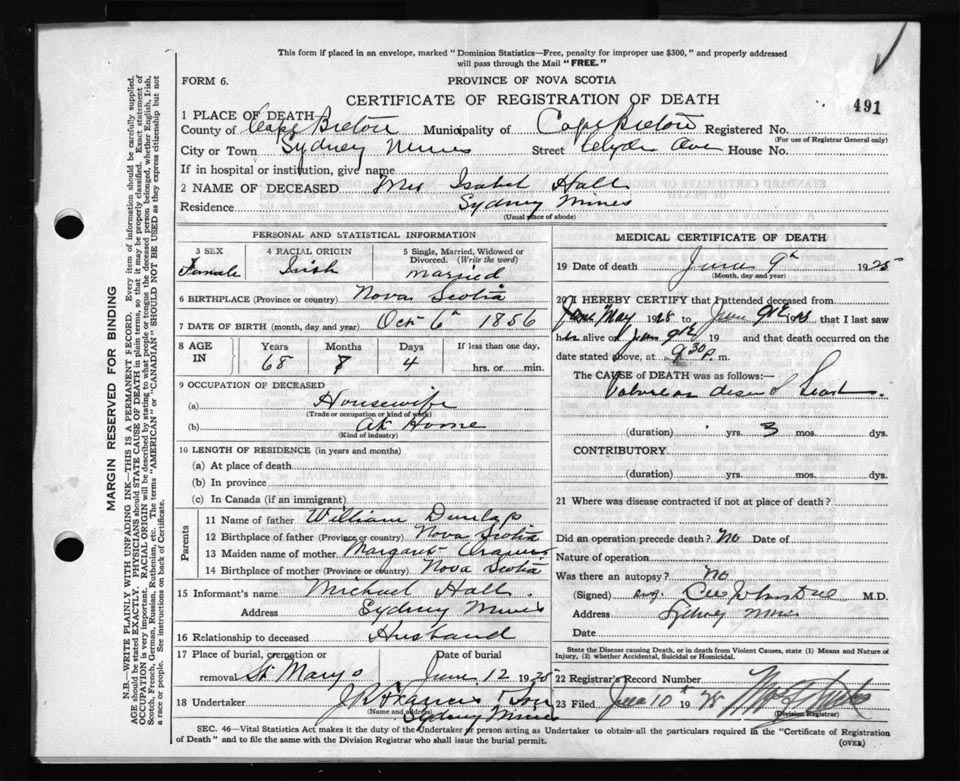 This form if placed in an envelope, marked "Dominion Statistics—Free, penalty for improper use $300," and properly addressed
will pass through the Mail "FREE."
FORM 6.
PROVINCE OF NOVA SCOTIA
CERTIFICATE OF REGISTRATION OF DEATH
491
1 PLACE OF DEATH
County of Cape Breton Municipality of Cape Breton Registered No.
(For use of Registrar General only)
City or Town Sydney Mines Street Clyde Ave House No.
If in hospital or institution, give name
2 NAME OF DECEASED Mrs Isabel Hall
Residence Sydney Mines
(Usual place of abode)
PERSONAL AND STATISTICAL INFORMATION
3 SEX
Female
4 RACIAL ORIGIN
Irish
5 Single, Married, Widowed or
Divorced. (Write the word)
married
6 BIRTHPLACE (Province or country) Nova Scotia
7 DATE OF BIRTH (month, day and year) Oct 6th 1856
8 AGE
IN
Years Months Days If less than one day,
68 8 4 hrs. or min.
9 OCCUPATION OF DECEASED
(a) Housewife
(Trade or occupation or kind of work)
(b) At Home
(Kind of industry)
10 LENGTH OF RESIDENCE (in years and months)
(a) At place of death
(b) In province
(c) In Canada (if an immigrant)
Parents
11 Name of father William Dunlap
12 Birthplace of father (Province or country) Nova Scotia
13 Maiden name of mother Margaret
14 Birthplace of mother (Province or country) Nova Scotia
15 Informant's name Michael Hall.
Address Sydney Mines
16 Relationship to deceased Husband
17 Place of burial, cremation or
removal St Marys
Date of burial
June 12 1925
18 Undertaker J R Francis & Son
(Name and address)
Sydney Mines
MEDICAL CERTIFICATE OF DEATH
19 Date of death June 9th 1925
(Month, day and year)
20 I HEREBY CERTIFY that I attended deceased from
May 1925 to June 9th 1925 that I last saw
her alive on June 9th 19 and that death occurred on the
date stated above, at 9 30 p. m.
The CAUSE of DEATH was as follows:—
Valvular disease of heart.
(duration) yrs. 3 mos. dys.
CONTRIBUTORY.
(duration) yrs. mos. dys.
21 Where was disease contracted if not at place of death?
Did an operation precede death? No Date of
Nature of operation
Was there an autopsy? No
(Signed) M.D.
Address Sydney Mines
Date
State the Disease causing Death, or in death from Violent Causes, state (1) Means and Nature of
Injury, (2) whether Accidental, Suicidal or Homicidal.
22 Registrar's Record Number
23 Filed June 10th 1925
(Division Registrar)
SEC. 46—Vital Statistics Act makes it the duty of the Undertaker or person acting as Undertaker to obtain all the particulars required in the "Certificate of Registration
of Death" and to file the same with the Division Registrar who shall issue the burial permit.
(OVER)
MARGIN RESERVED FOR BINDING
N.B.—WRITE PLAINLY WITH UNFADING INK—THIS IS A PERMANENT RECORD. Every item of information should be carefully supplied.
AGE should be stated EXACTLY. PHYSICIANS should STATE CAUSE OF DEATH in plain terms, so that it may be properly classified. Exact statement of
OCCUPATION is very important. RACIAL ORIGIN will be described by stating to what people or tongue the deceased person belonged, whether English, Irish,
Scotch, French, German, Russian, Ruthenian, etc. The terms "AMERICAN" or "CANADIAN" SHOULD NOT BE USED as they express citizenship but not
a race or people. See instructions on back of Certificate.